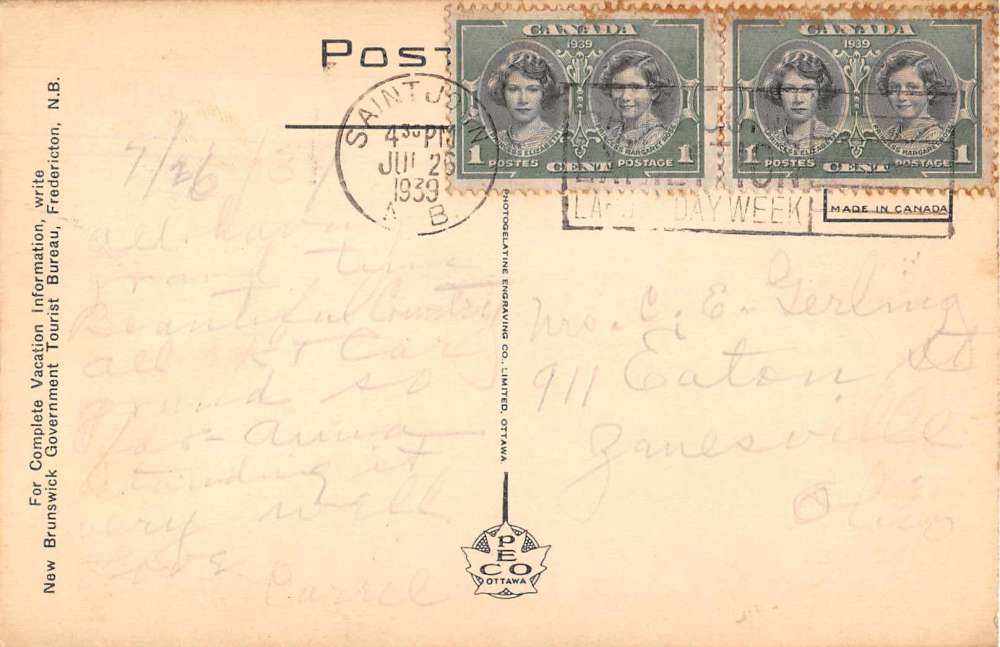 For Complete Vacation Information, write
New Brunswick Government Tourist Bureau, Fredericton, N.B.
POST
SAINT JOHN
4 30 PM
JUL 26
1939
N. B.
CANADA
1939
PRINCESS ELIZABETH
PRINCESS MARGARET
1 POSTES CENT POSTAGE 1
CANADA
1939
PRINCESS ELIZABETH
PRINCESS MARGARET
1 POSTES CENT POSTAGE 1
EXHIBITION
LABOR DAY WEEK
MADE IN CANADA
PHOTOGELATINE ENGRAVING CO., LIMITED, OTTAWA.
7/26/39
all having
grand time
Beautiful Country
all ok + Car
grand so
far - Anna
standing it
very well
Love
Mrs. C. E. Gerling
911 Eaton St
Zanesville
Ohio
PECO
OTTAWA